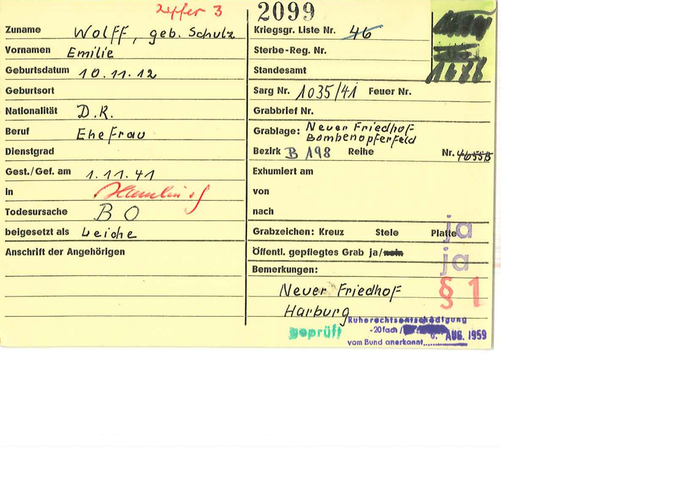 Ziffer 3
Zuname Wolff, geb. Schulz
Vornamen Emilie
Geburtsdatum 10.11.12
Geburtsort
Nationalität D.R.
Beruf Ehefrau
Dienstgrad
Gest./Gef. am 1.11.41
in
Todesursache BO
beigesetzt als Leiche
Anschrift der Angehörigen
2099
Kriegsgr. Liste Nr. 46
Sterbe-Reg. Nr.
Standesamt
1686
Sarg Nr. 1035/41 Feuer Nr.
Grabbrief Nr.
Grablage: Neuer Friedhof
Bombenopferfeld
Bezirk B A98 Reihe Nr.
Exhumiert am
von
nach
Grabzeichen: Kreuz Stele Platte ja
Öffentl. gepflegtes Grab ja/nein ja
Bemerkungen:
§ 1
Neuer Friedhof
Harburg
geprüft
Ruherechtsentschädigung
-20fach /
AUG. 1959
vom Bund anerkannt